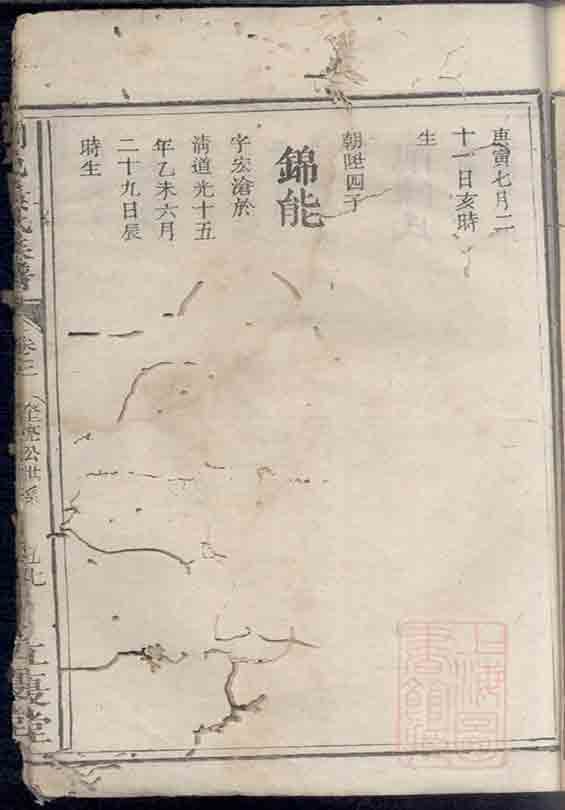 庚寅七月二
十一日亥時
生
朝陞四子
錦能
字宏滄於
清道光十五
年乙未六月
二十九日辰
時生
氏族譜
卷三
公世系
上海圖書館藏